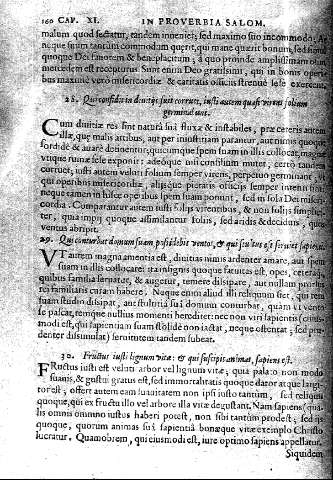 160 CAP. XI. IN PROVERBIA SALOM.
malum quod sectatur, tandem inveniet; sed maximo suo incommodo: At
neque suum tantum commodum quęrit, qui mane quærit bonum, sed bonum
quoque Dei favorem & beneplacitum; à quo proinde amplissimam olim
mercedem est recepturus. Sunt enim Deo gratissimi, qui in bonis operi-
bus maximè verò misericordiæ & caritatis officiis strenuè sese exercent
28. Qui confidit in divitijs suis corruet, iusti autem quasi virens folium
germinabunt.
CUm divitiæ res sint natura sua fluxæ & instabiles, præcæteris autem
illæ, quæ malis artibus, aut per iniustitiam parantur, aut nimis quoque
sordidè & auarè detinentur; quicumque spem suam in illis collocat, magna
vtique ruinæ sese exponit: adeoque nisi consilium mutet, certo tandem
corruet; iusti autem veluti folium semper virens, perpetuo germinant,
qui operibus misericordiæ, aliisque pietatis officiis semper intenti sunt,
neque tamen in hisce operibus spem suam ponunt, sed in sola Dei miseri-
cordia. Comparantur autem iusti foliis virentibus, & non foliis simplici-
ter, quia impij quoque assimilantur foliis, sed aridis & deciduis, quæ
ventus abripit.
29. Qui conturbat domum suam possidebit ventos, & qui stultus est serviet sapienti.
VT autem magna amentia est, divitias nimis ardenter amare, aut spem
suam in illis collocare: ita indignis quoque fatuitas est, opes, ceteraque
quibus familia sernatur, & augetur, temere dissipare, aut nullam prorsus
rei familiaris curam habere. Neque enim aliud illi reliquum fiet, qui rem
suam studio dissipat, aut stultitia sua domum conturbat, quàm vt vento
se pascat, temque nullius momenti hereditet: nec non viri sapientis (cuius-
modi est, qui sapientiam suam stolidè non iactat, neque ostentat; sed pru-
denter dissimulat) servitutem tandem subeat.
30. Fructus iusti lignum vitæ: & qui suscipit animas, sapiens est.
FRuctus iusti est veluti arbor vel lignum vitæ; quia palato non modo
suauis, & gustui gratus est, sed immortalitatis quoque dator atque largi-
tor est; offert autem eam suauitatem non ipsi iusto tantum, sed reliquis
quoque, qui ex fructu illo vel arbore illa vitæ degustant. Nam sapiens (qua-
lis omnis omnino iustus haberi potest, non sibi tantùm prodest; sed iis
quoque, quorum animas sui sapientiâ bonæque vitæ exemplo Christo
lucratur. Quamobrem, qui eiusmodi est, iure optimo sapiens appellatur.
Siquidem